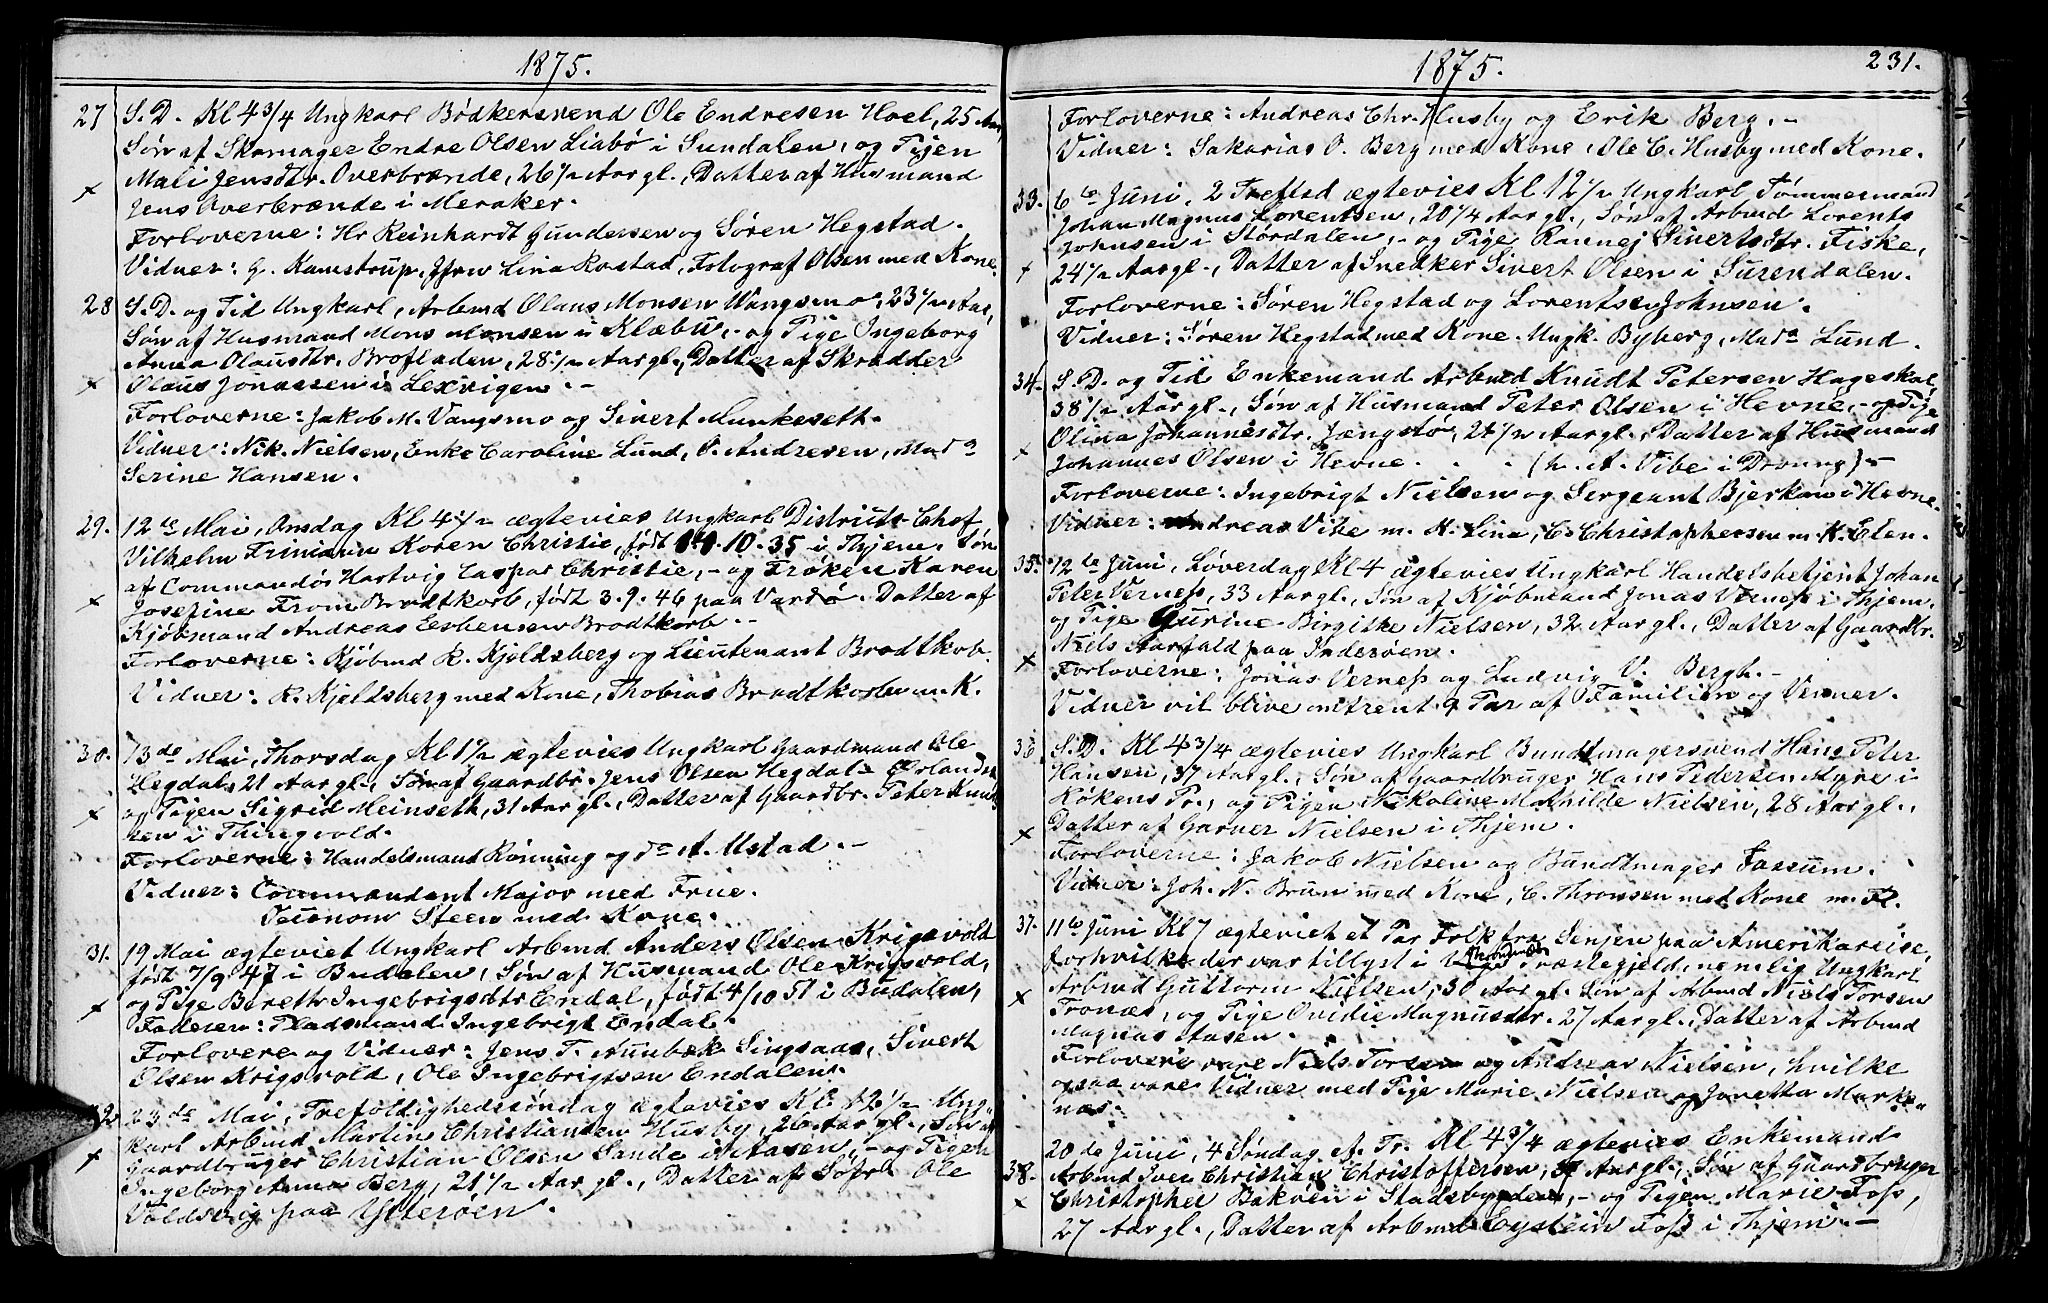 1875.
27 S.D. Kl 4 3/4 Ungkarl Bødkersvend Ole Endresen Hoel, 25 Aar,
Søn af Skomager Endre Olsen Liabø i Sundalen, og Pigen
Mali Jensdtr. Overbrænde, 26 1/2 Aar gl., Datter af Husmand
Jens Overbrænde i Meraker.
Forloverne: Hr Reinhardt Gundersen og Søren Hegstad.
Vidner: G. Kamstrup, Jfrw Lina Rostad, Fotograf Olsen med Kone.
28 S.D. og Tid Ungkarl, Arbmd Olaus Monsen Vangsmo, 23 1/2 Aar,
Søn af Husmand Mons Monsen i Klæbu, - og Pige Ingeborg
Anna Olausdtr. Brofladen, 28 1/2 Aar gl., Datter af Skrædder
Olaus Jonassen i Lexvigen. -
Forloverne: Jakob M. Vangsmo og Sivert Munkesett.
Vidner: Nik. Nielsen, Enke Caroline Lund, O. Andresen, Mada
Serine Hansen.
29. 12te Mai, Onsdag Kl 4 1/2 ægtevies Ungkarl Districts Chef,
Vilhelm Frimann Koren Christie, født 10.35 i Thjem. Søn
af Commandør Hartvig Caspar Christie, - og Frøken Karen
Josefine From Brodtkorb, født 3.9.46 paa Vardø. Datter af
Kjøbmand Andreas Esbensen Brodtkorb. -
Forloverne: Kjøbmd R. Kjeldsberg og Lieutenant Brodtkorb.
Vidner: R. Kjeldsberg med Kone, Thobias Brodtkorb m. K.
30. 13de Mai, Thorsdag Kl 1 1/2 ægtevies Ungkarl Gaardmand Ole
Hegdal, 21 Aar gl., Søn af Gaardbr. Jens Olsen Hegdal
og Pigen Sigrid Meinseth, 31 Aar gl., Datter af Gaardbr. Peter Knud
sen i Thingvold.
Forloverne: Handelsmand Rønning og do A. Ustad. -
Vidner: Commandant Major med Frue.
Steen med Kone.
31. 19 Mai ægteviet Ungkarl Arbmd Anders Olsen Krigsvold
født 7/9 47 i Budalen, Søn af Husmand Ole Krigsvold,
og Pige Bereth Ingebrigsdtr Endal, født 4/10 51 i Budalen,
Faderen: Pladsmand Ingebrigt Endal.
Forlovere og Vidner: Jens T. Aunbæk Singsaas, Sivert
Olsen Krigsvold, Ole Ingebrigtsen Endalen.
32. 23de Mai, Trefoldighedssøndag ægtevies Kl. 12 1/2 Ung-
karl Arbmd Martin Christiansen Husby, 26 Aar gl., Søn af
Gaardbruger Christian Olsen Sande i Aasen, - og Pigen
Ingeborg Anna Berg, 21 1/2 Aar gl., Datter af Ole
Voldsvig paa Ytterøen.
1875. 231.
Forloverne: Andreas Chr. Husby og Erik Berg. -
Vidner: Sakarias O. Berg med Kone, Ole C. Husby med Kone.
33. 6te Juni, 2 Treftsd ægtevies Kl 12 1/2 Ungkarl Tømmermand
Johan Magnus Lorentsen, 20 1/4 Aar gl., Søn af Arbmd Lorents
Johnsen i Størdalen, - og Pige Rannej Sivertsdtr. Fiske,
24 1/2 Aar gl., Datter af Snedker Sivert Olsen i Surendalen.
Forloverne: Søren Hegstad og Lorents Johnsen.
Vidner: Søren Hegstad med Kone. Ungk. Byberg, Mada Lund.
34. S.D. og Tid Enkemand Arbmd Knudt Petersen Hageskal,
38 1/2 Aar gl., Søn af Husmand Peter Olsen i Hevne, - og Pige
Olina Johannesdtr. 24 1/2 Aar gl., Datter af Husmand
Johannes Olsen i Hevne. . . (h. A. Vibe i Dronng) -
Forloverne: Ingebrigt Nielsen og Sergeant Bjerkan i Hevne.
Vidner: Andreas Vibe m. H. Lina, C. Christophersen m. K. Elen.
35. 12te Juni, Løverdag Kl 4 ægtevies Ungkarl Handelsbetjent Johan
Peter Verness, 33 Aar gl., Søn af Kjøbmand Jonas Verness i Thjem.
og Pige Gurine Birgitke Nielsen, 32 Aar gl., Datter af Gaardbr.
Niels Aarfald paa Inderøen.
Forloverne: Jonas Verness og Ludvig V. Bergh. -
Vidner vil blive omtrent 9 Par af Familien og Venner.
36. S.D. Kl 4 3/4 ægtevies Ungkarl Bundtmagersvend Hans Peter
Hansen, 37 Aar gl., Søn af Gaardbruger Hans Pedersen Myre i
Høkens Pr., og Pigen Nikoline Mathilde Nielsen, 28 Aar gl.,
Datter af Garver Nielsen i Thjem.
Forloverne: Jakob Nielsen og Bundtmager Fossum.
Vidner: Joh. N. Bruun med Kone, C. Thronsen med Kone m. Fl.
37. 11te Juni Kl 7 ægteviet et Par Folk fra Senjen paa Amerikareise,
for hvilke der var tillyst i Præstegjeld, nemlig Ungkarl
Arbmd Guttorm Nielsen, 30 Aar gl. Søn af Arbmd Niels Torsen
Tronæs, og Pige Ovidie Magnusdtr. 27 Aar gl., Datter af Arbmd
Magnus Aasen.
Forlovere vare Niels Torsen og Andreas Nielsen, hvilke
ogsaa vare Vidner med Pige Marie Nielsen og Jonetta Marke-
næs.
38. 20de Juni, 4 Søndag ef. Tr. Kl 4 3/4 ægtevies Enkemand
Arbmd Iver Christian Christoffersen, Aar gl., Søn af Gaardbruger
Christopher Bakøen i Stadsbygden, - og Pigen Marie Foss,
27 Aar gl., Datter af Arbmd Eystein Foss i Thjem. -